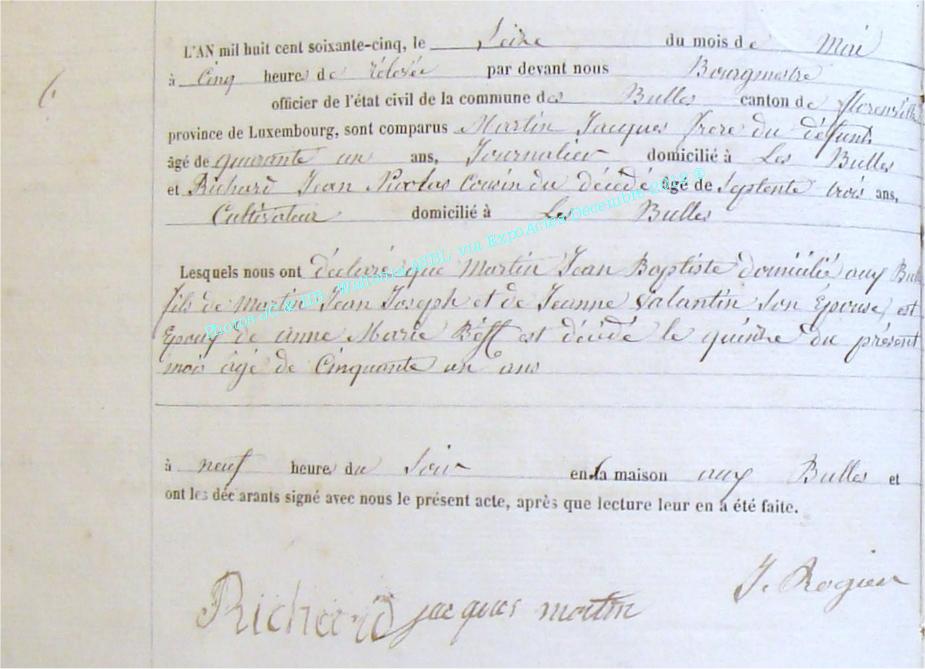 L'AN mil huit cent soixante-cinq, le Seize du mois de Mai
à Cinq heures de rélevée par devant nous Bourgmestre
officier de l'état civil de la commune des Bulles canton de florenville
province de Luxembourg, sont comparus Martin Jacques frere du défunt
âgé de quarante un ans, Journalier domicilié à Les Bulles
et Richard Jean Nicolas Cousin du décédé âgé de Septente trois ans,
Cultivateur domicilié à Les Bulles
Lesquels nous ont déclaré que Martin Jean Baptiste domicilié aux Bulles
fils de Martin Jean Joseph et de Jeanne Valantin Son Epouse, est
Epoux de anne Marie est décédé le quinze du présent
mois âgé de Cinquante un ans
à neuf heure du Soir en sa maison aux Bulles et
ont les déclarants signé avec nous le présent acte, après que lecture leur en a été faite.
Richard jacques martin J. Rogier